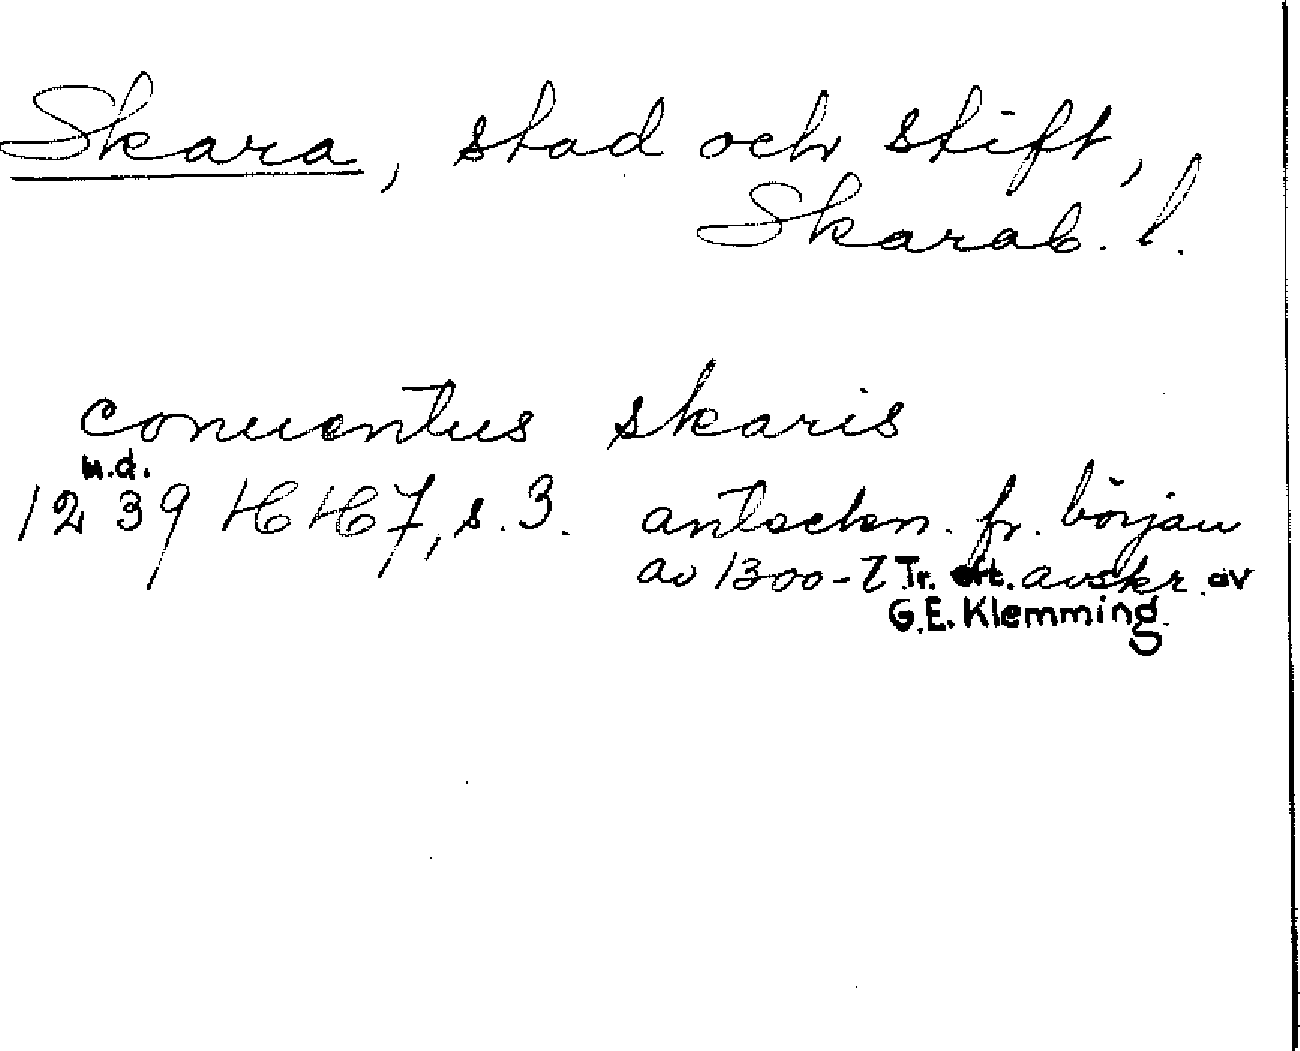 Skara, stad och stift,
Skarab. l.
conuentus skaris
u.d.
1239 HH7, s. 3. anteckn. fr. början
av 1300-t Tr. eft. avskr. av
G.E. Klemming.